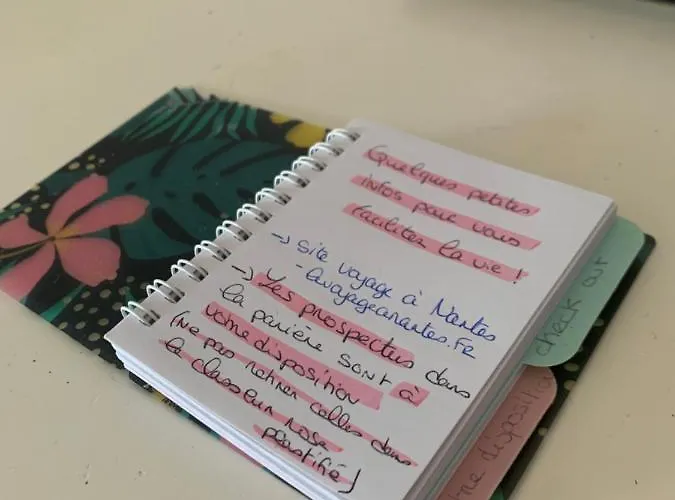 Quelques petites
infos pour vous
facilitez la vie !
→ Site voyage à Nantes
- levoyageanantes.fr
→ Les prospectus dans
la panière sont à
votre disposition
(ne pas retirer celles dans
le classeur rose
plastifié)
check out
tre disposition